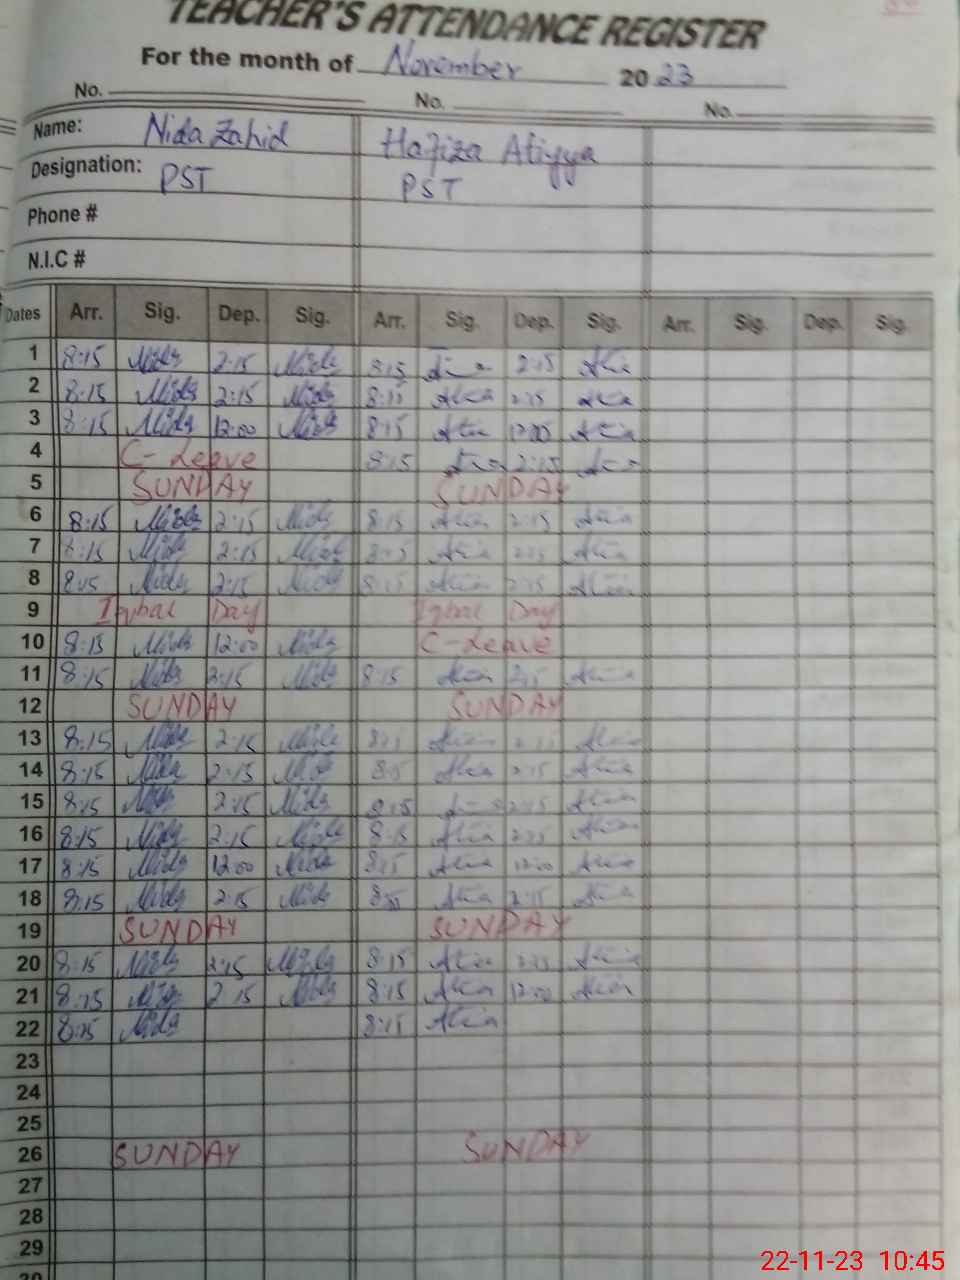 TEACHER'S ATTENDANCE REGISTER
For the month of November 2023
No. No. No.
Name: Nida Zahid Hafiza Atiyya
Designation: PST PST
Phone #
N.I.C #
Dates Arr. Sig. Dep. Sig. Arr. Sig. Dep. Sig. Arr. Sig. Dep. Sig.
1 8:15 Nida 2:15 Nida 8:15 2:15 Atia
2 8:15 Nida 2:15 Nida 8:15 Atia 2:15 Atia
3 8:15 Nida 12:00 Nida 8:15 Atia 12:00 Atia
4 C-Leave 8:15 2:15
5 SUNDAY SUNDAY
6 8:15 Nida 2:15 Nida 8:15 Atia 2:15 Atia
7 8:15 Nida 2:15 Nida 8:15 Atia 2:15 Atia
8 8:15 Nida 2:15 Nida 8:15 Atia 2:15 Atia
9 Iqbal Day Iqbal Day
10 8:15 Nida 12:00 Nida C-Leave
11 8:15 Nida 2:15 Nida 8:15 Atia 2:15 Atia
12 SUNDAY SUNDAY
13 8:15 Nida 2:15 Nida 8:15 Atia 2:15 Atia
14 8:15 Nida 2:15 Nida 8:15 Atia 2:15 Atia
15 8:15 Nida 2:15 Nida 8:15 2:15 Atia
16 8:15 Nida 2:15 Nida 8:15 Atia 2:15 Atia
17 8:15 Nida 12:00 Nida 8:15 Atia 12:00 Atia
18 8:15 Nida 2:15 Nida Atia 2:15 Atia
19 SUNDAY SUNDAY
20 8:15 Nida 2:15 Nida 8:15 Atia 2:15 Atia
21 8:15 Nida 2:15 Nida 8:15 Atia 12:00 Atia
22 8:15 Nida 8:15 Atia
23
24
25
26 SUNDAY SUNDAY
27
28
29
30
22-11-23 10:45